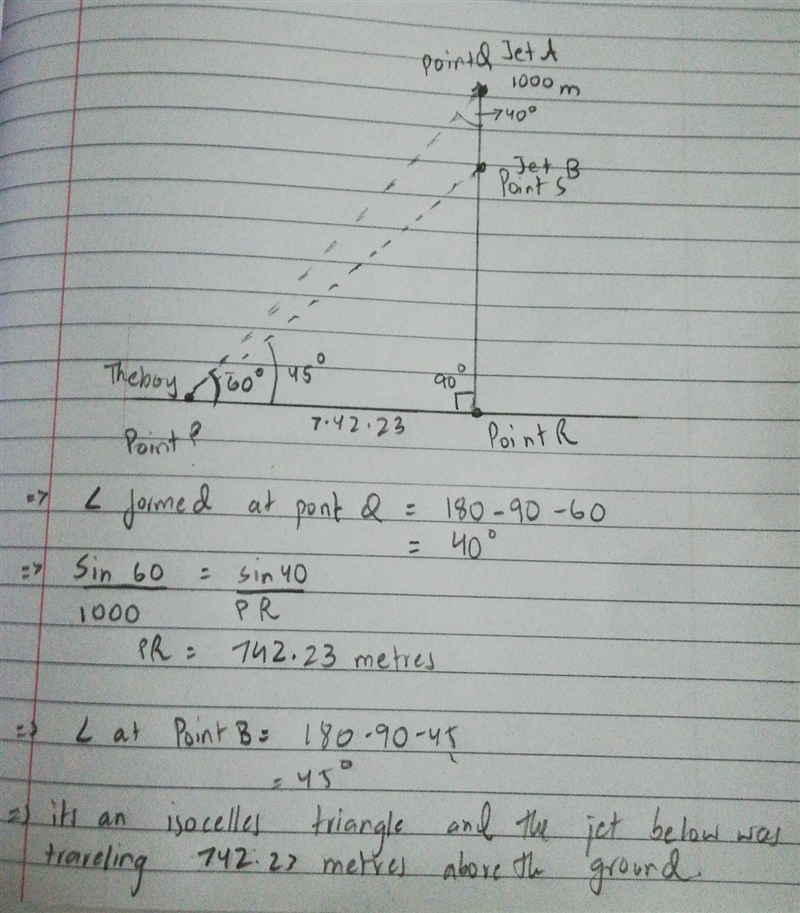 Point Q Jet A
1000 m
→ 40°
Jet B
Point S
The boy
60°
45°
90°
7.42.23
Point P
Point R
=> ∠ formed at pont Q = 180 - 90 - 60
= 40°
=> Sin 60 = sin 40
1000 PR
PR = 742.23 metres
=> ∠ at Point B = 180 - 90 - 45
= 45°
=> its an isocelles triangle and the jet below was
traveling 742.23 metres above the ground.